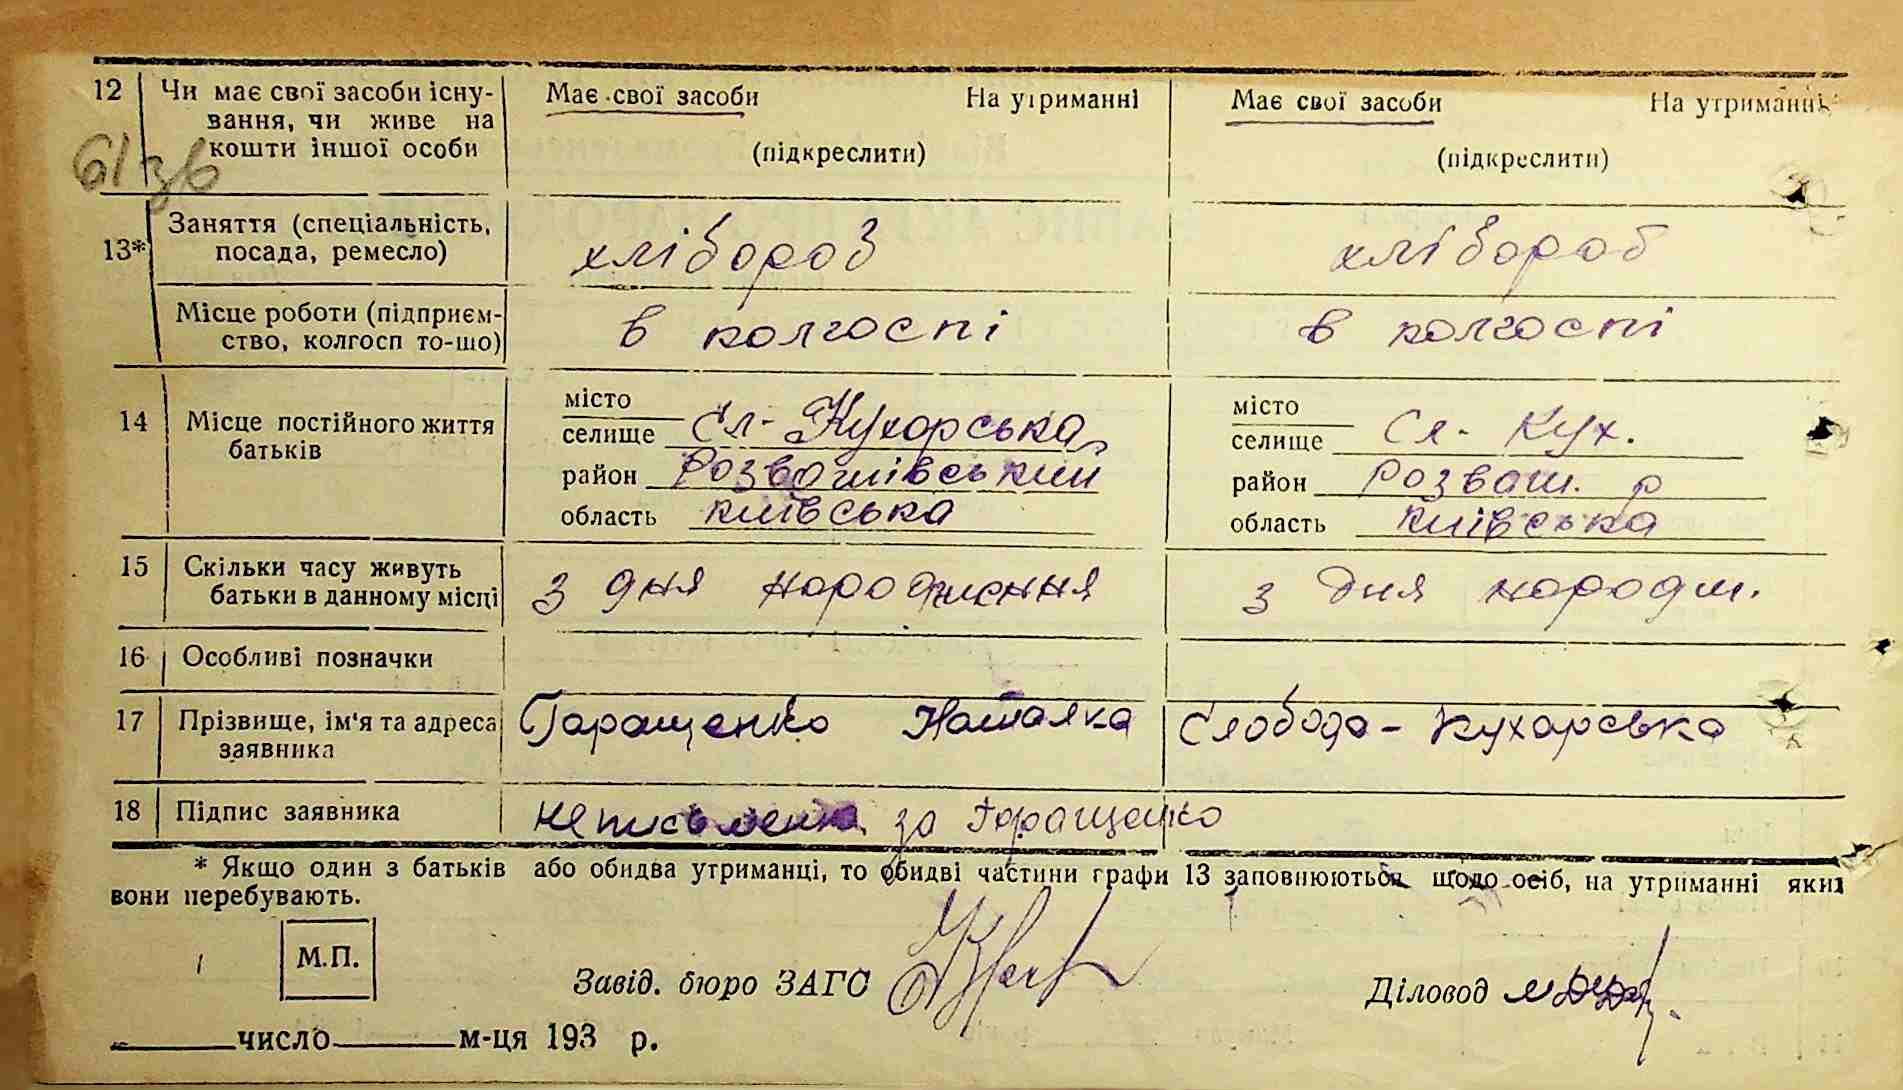 12 Чи має свої засоби існу- Має свої засоби На утриманні Має свої засоби На утриманні
вання, чи живе на
кошти іншої особи (підкреслити) (підкреслити)
61 зв
13* Заняття (спеціальність, посада, ремесло) хлібороб хлібороб
Місце роботи (підприєм-
ство, колгосп то-що) в колгоспі в колгоспі
14 Місце постійного життя
батьків
місто
селище Сл-Кухарська
район Розважівський
область київська
місто
селище Сл- Кух.
район Розваж. р
область київська
15 Скільки часу живуть
батьки в данному місці з дня народження з дняародж.
16 Особливі позначки
17 Прізвище, ім'я та адреса
заявника Гаращенко Наталка Слобода-Кухарська
18 Підпис заявника неписьменна за Гаращенко
* Якщо один з батьків або обидва утриманці, то обидві частини графи 13 заповнюються щодо осіб, на утриманні яких
вони перебувають.
М.П.
Завід. бюро ЗАГС
Діловод
число м-ця 193 р.